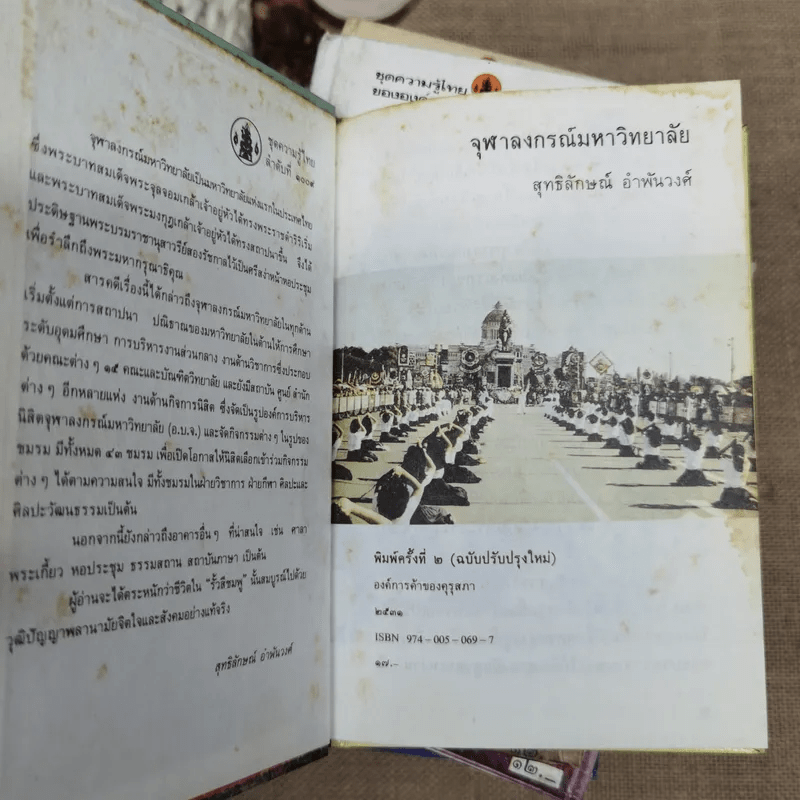 ชุดความรู้ไทย
ลำดับที่ ๑๐๐๙
จุฬาลงกรณ์มหาวิทยาลัยเป็นมหาวิทยาลัยแห่งแรกในประเทศไทย
ซึ่งพระบาทสมเด็จพระจุลจอมเกล้าเจ้าอยู่หัวได้ทรงพระราชดำริริเริ่ม
และพระบาทสมเด็จพระมงกุฎเกล้าเจ้าอยู่หัวได้ทรงสถาปนาขึ้น จึงได้
ประดิษฐานพระบรมราชานุสาวรีย์สองรัชกาลไว้เป็นศรีสง่าหน้าหอประชุม
เพื่อรำลึกถึงพระมหากรุณาธิคุณ
สารคดีเรื่องนี้ได้กล่าวถึงจุฬาลงกรณ์มหาวิทยาลัยในทุกด้าน
เริ่มตั้งแต่การสถาปนา ปณิธานของมหาวิทยาลัยในด้านให้การศึกษา
ระดับอุดมศึกษา การบริหารงานส่วนกลาง งานด้านวิชาการซึ่งประกอบ
ด้วยคณะต่าง ๆ ๑๕ คณะและบัณฑิตวิทยาลัย และยังมีสถาบัน ศูนย์ สำนัก
ต่าง ๆ อีกหลายแห่ง งานด้านกิจการนิสิต ซึ่งจัดเป็นรูปองค์การบริหาร
นิสิตจุฬาลงกรณ์มหาวิทยาลัย (อ.บ.จ.) และจัดกิจกรรมต่าง ๆ ในรูปของ
ชมรม มีทั้งหมด ๔๓ ชมรม เพื่อเปิดโอกาสให้นิสิตเลือกเข้าร่วมกิจกรรม
ต่าง ๆ ได้ตามความสนใจ มีทั้งชมรมในฝ่ายวิชาการ ฝ่ายกีฬา ศิลปะและ
ศิลปะวัฒนธรรมเป็นต้น
นอกจากนี้ยังกล่าวถึงอาคารอื่น ๆ ที่น่าสนใจ เช่น ศาลา
พระเกี้ยว หอประชุม ธรรมสถาน สถาบันภาษา เป็นต้น
ผู้อ่านจะได้ตระหนักว่าชีวิตใน “รั้วสีชมพู” นั้นสมบูรณ์ไปด้วย
วุฒิปัญญาพลานามัยจิตใจและสังคมอย่างแท้จริง
สุทธิลักษณ์ อำพันวงศ์
ชุดความรู้ไทย
ขององ
จุฬาลงกรณ์มหาวิทยาลัย
สุทธิลักษณ์ อำพันวงศ์
พิมพ์ครั้งที่ ๒ (ฉบับปรับปรุงใหม่)
องค์การค้าของคุรุสภา
๒๕๓๑
ISBN 974-005-069-7
๑๗.-
๑๒.-